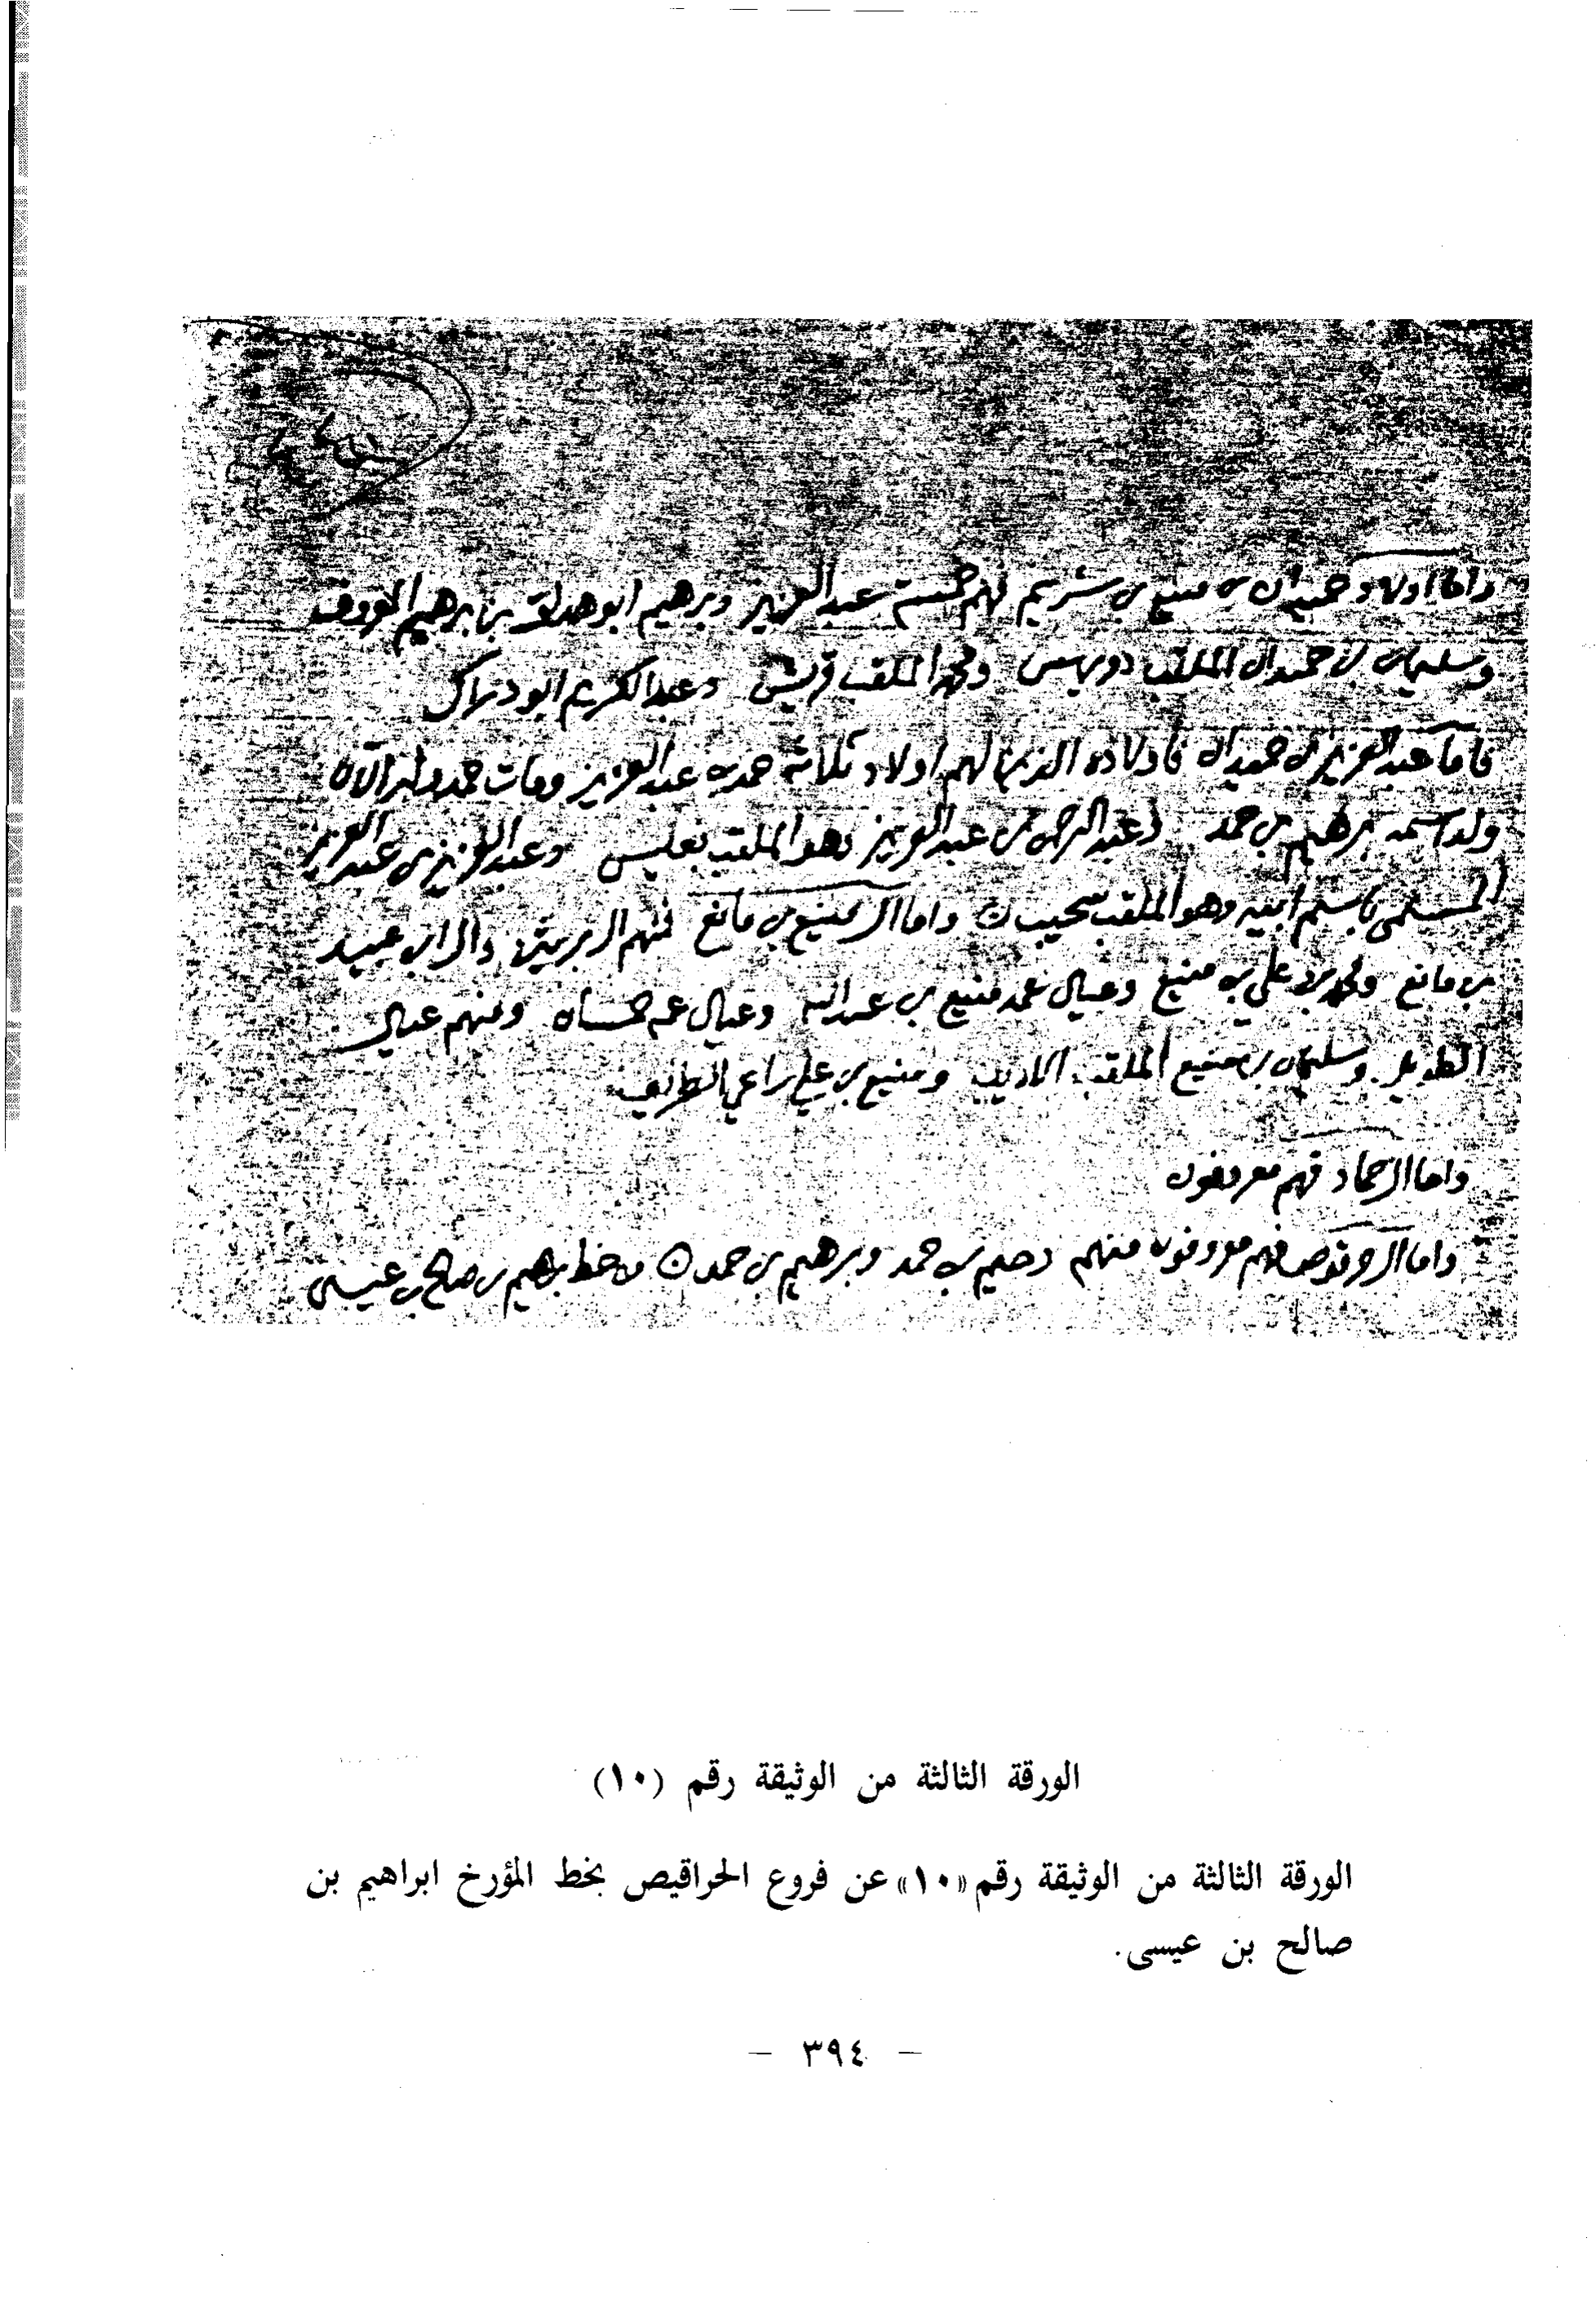 واما اولاد حميدان بن منيع بن شريم فهم خمسة عبدالعزيز وبرهيم ابو هدلق بن برهيم المعروف
وسليمان بن حميدان الملقب دويهس ومحمد الملقب قريشي وعبدالكريم ابو دهراك
فاما عبدالعزيز بن حميدان فاولاده الذين لهم اولاد ثلاثة حمد بن عبدالعزيز ومات حمد وله الآن
ولد اسمه برهيم بن حمد وعبدالرحمن بن عبدالعزيز وهو الملقب بعليس وعبدالعزيز بن عبدالعزيز
المسمى باسم ابيه وهو الملقب سحيبان واما ال منيع بن مانع فمنهم وال ابن عبيد
بن مانع ومحمد بن علي بن منيع وعيال عمه منيع بن عبدالله وعيال عم حسان ومنهم عيال
الطويل وسليمان بن منيع الملقب الاديب ومنيع بن علي راعي الطريف
واما ال حماد فهم معروفون
واما ال حرقوص فهم معروفون منهم دحيم بن حمد وبرهيم بن حمد من خط برهيم بن صالح بن عيسى
الورقة الثالثة من الوثيقة رقم (١٠)
الورقة الثالثة من الوثيقة رقم «١٠» عن فروع الحراقيص بخط المؤرخ ابراهيم بن
صالح بن عيسى.
— ٣٩٤ —